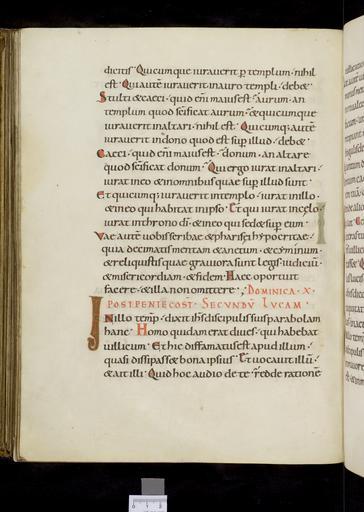 dicitis · Quicumque iurauerit p templum · nihil
est · Qui autē iurauerit in auro templi · debet
Stulti et caeci · quid enī maius est · aurum · an
templum quod scificat aurum · et quicumque
iurauerit in altari · nihil est · Quicumq; autē
iurauerit in dono quod est sup illud · debet
Caeci · quid enī maius est · donum · an altare
quod scificat donum · Qui ergo iurat in altari ·
iurat in eo et in omnibus quae sup illud sunt
Et quicumq; iurauerit in templo · iurat in illo ·
et in eo qui habitat in ipso · Et qui iurat in celo ·
iurat in throno di · et in eo qui sedet sup eum ·
Vae autē uobis scribae et pharisei hypocritae ·
quia decimatis mentam et anetum · et cyminum ·
et reliquistis quae grauiora sunt legis · iudiciū ·
et misericordiam · et fidem · Haec oportuit
facere · et illa non omittere · DOMINICA · X ·
POST PENTECOST SECUNDŪ LUCAM
In illo temp · dixit ihs discipulis suis parabolam
hanc · Homo quidam erat diues · qui habebat
uillicum · Et hic diffamatus est apud illum ·
quasi dissipasset bona ipsius · Et uocauit illū ·
et ait illi · Quid hoc audio de te · redde rationē